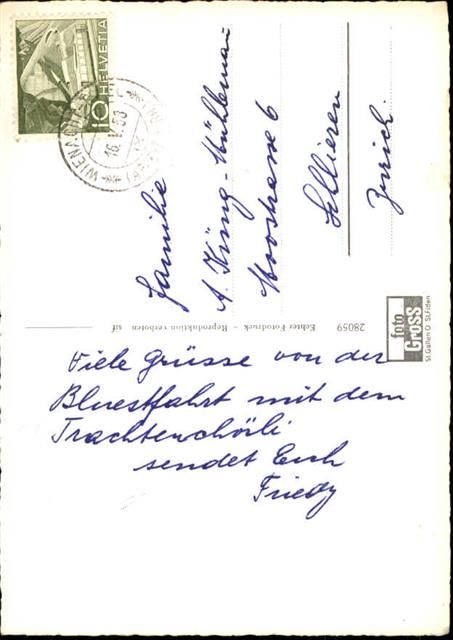 HELVETIA
10
16.V.60
Familie
A. Küng-Mühlemann
Moosstrasse 6
Zürich
28059
Echter Fotodruck – Reproduktion verboten
foto
Gross
St.Gallen O St.Fiden
Viele Grüsse von der
Bluestfahrt mit dem
Trachtenchörli
sendet Euch
Friedy